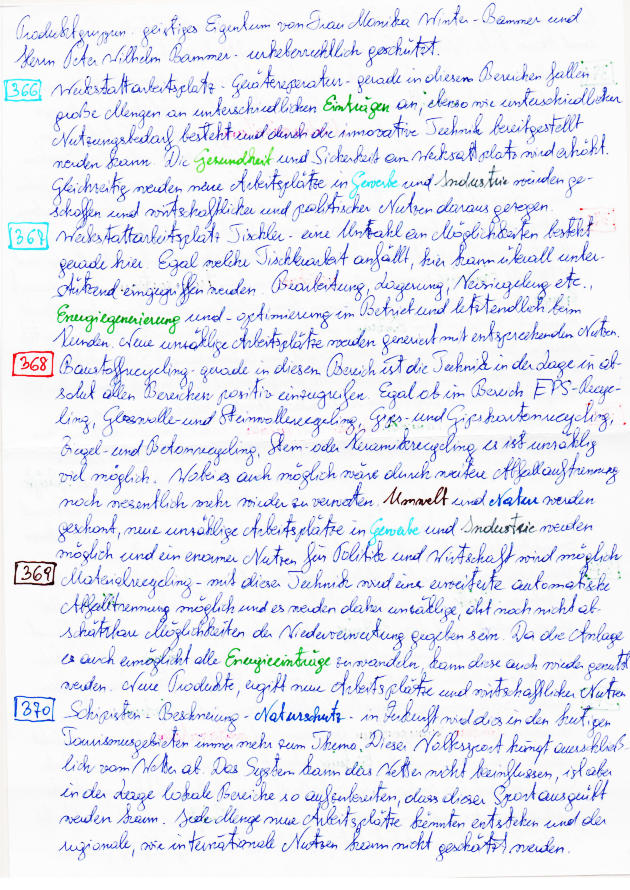 Produktgruppen - geistiges Eigentum von Frau Monika Winter-Bammer und
Herrn Peter Wilhelm Bammer - urheberrechtlich geschützt.
366 Werkstattarbeitsplatz - Gerätereperatur - gerade in diesem Bereichen fallen
große Mengen an unterschiedlichen Einträgen an, ebenso wie unterschiedlicher
Nutzungsbedarf besteht und durch die innovative Technik bereitgestellt
werden kann. Die Gesundheit und Sicherheit am Werksattplatz wird erhöht.
Gleichzeitig werden neue Arbeitsplätze in Gewerbe und Industrie würden ge-
schaffen und wirtschaftlicher und politischer Nutzen daraus gezogen.
367 Werkstattarbeitsplatz Tischler - eine Unzahl an Möglichkeiten besteht
gerade hier. Egal welche Tischlerarbeit anfällt, hier kann überall unter-
stützend eingegriffen werden. Bearbeitung, Lagerung, Versiegelung etc.,
Energiegenerierung und - optimierung im Betrieb und letztendlich beim
Kunden. Neue unzählige Arbeitsplätze werden generiert mit entsprechenden Nutzen.
368 Baustoffrecycling - gerade in diesen Bereich ist die Technik in der Lage in ab-
solut allen Bereichen positiv einzugreifen. Egal ob im Bereich EPS-Recyc-
ling, Glaswolle- und Steinwollerecycling, Gips- und Gipskartonrecycling,
Ziegel- und Betonrecycling, Stein- oder Keramikrecycling es ist unzählig
viel möglich. Wobei es auch möglich wäre durch weitere Abfallauftrennung
noch wesentlich mehr wieder zu verwerten. Umwelt und Natur werden
geschont, neue unzählige Arbeitsplätze in Gewerbe und Industrie werden
möglich und ein enormer Nutzen für Politik und Wirtschaft wird möglich
369 Materialrecycling - mit dieser Technik wird eine erweiterte automatische
Abfalltrennung möglich und es werden daher unzählige, dzt noch nicht ab-
schätzbare Möglichkeiten der Wiederverwertung gegeben sein. Da die Anlage
es auch ermöglicht alle Energieeinträge zu wandeln, kann diese auch wieder genutzt
werden. Neue Produkte, ergibt neue Arbeitsplätze und wirtschaftlicher Nutzen
370 Schipisten - Beschneiung - Naturschutz - in Zukunft wird dies in den heutigen
Tourismusgebieten immer mehr zum Thema. Dieser Volkssport hängt ausschließ-
lich vom Wetter ab. Das System kann das Wetter nicht beeinflussen, ist aber
in der Lage lokale Bereiche so aufzubereiten, dass dieser Sport ausgeübt
werden kann. Jede Menge neue Arbeitsplätze könnten entstehen und der
regionale, wie internationale Nutzen kann nicht geschätzt werden.